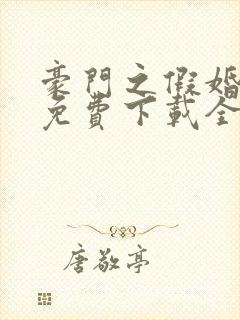 豪門之假婚
免費下載全
唐敬亭